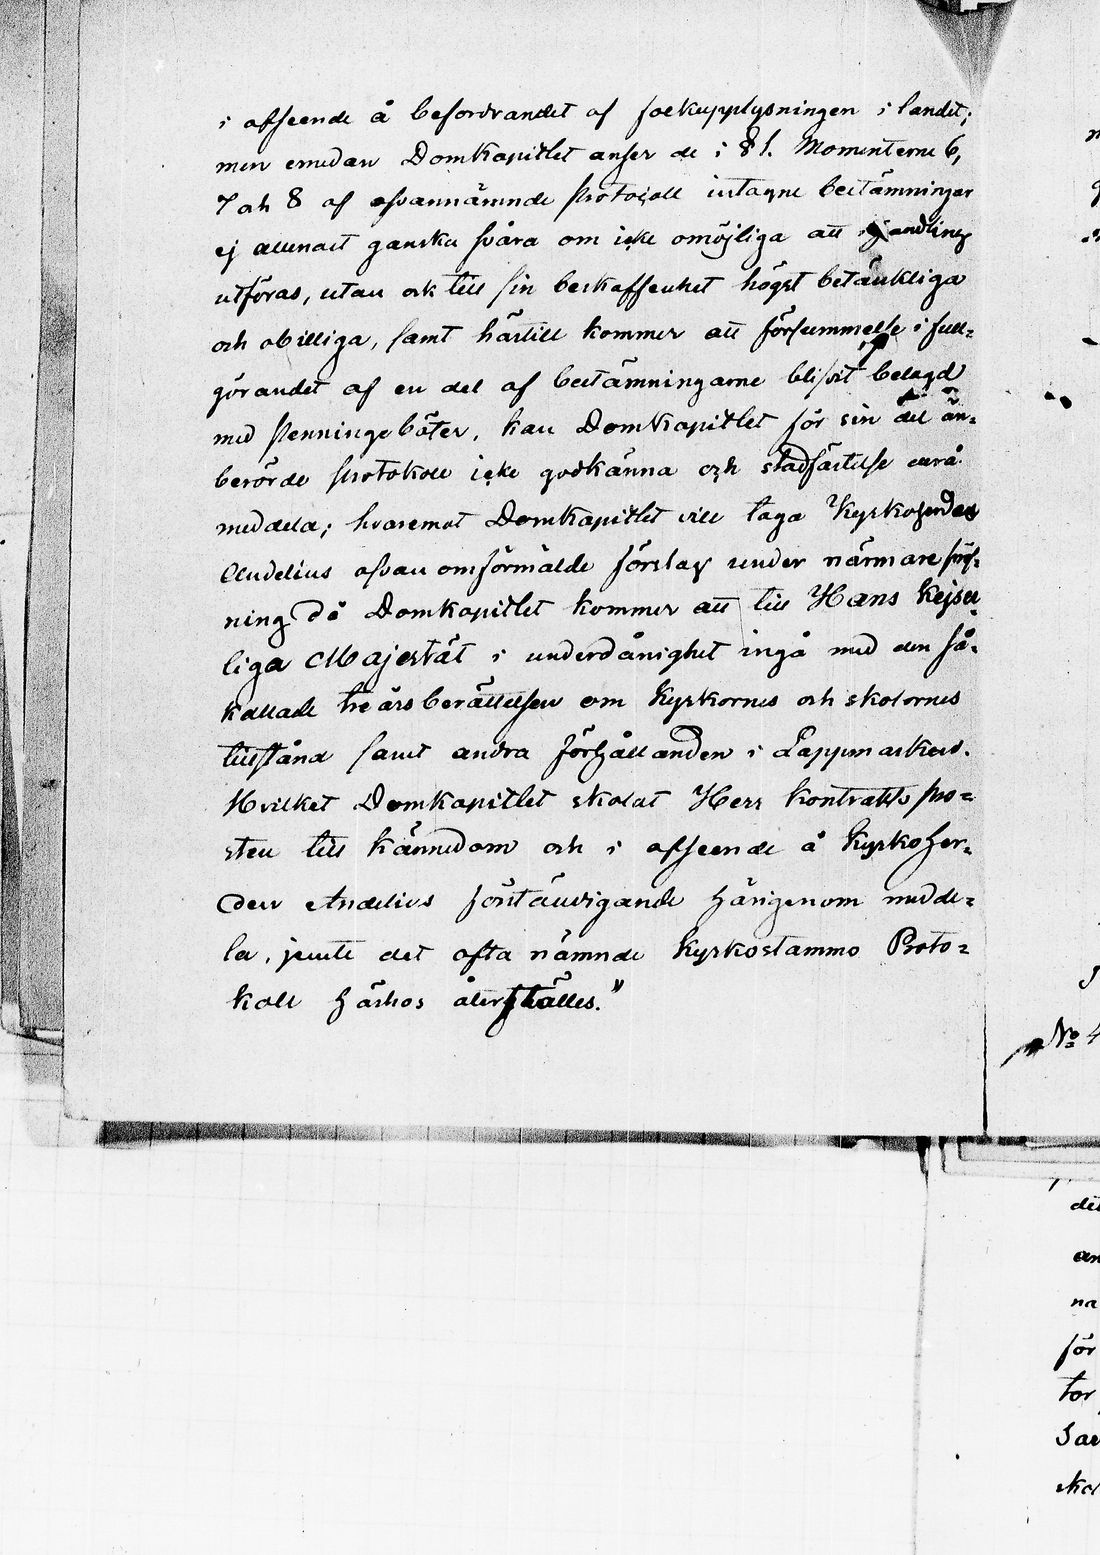 i afseende å befordrandet af folkupplysningen i landet;
men emedan Domkapitlet anser de i 8 §. Momenterne 6,
7 och 8 af ofvannämnde protocoll intagne bestämningar
ej allenast ganska svåra om icke omöjliga att i handling
utföras, utan ock till sin beskaffenhet högst betänkliga
och obilliga, samt härtill kommer att försummelse i full-
görandet af en del af bestämningarne blifvit belagd
med penningeböter, kan Domkapitlet för sin del än-
berörde protokoll icke godkänna och stadfästelse derå
meddela; hvaremot Domkapitlet vill taga Kyrkoherden
Andelius ofvan omförmälde förslag under närmare pröf-
ning då Domkapitlet kommer att till Hans Kejser-
liga Majestät i underdånighet ingå med den så-
kallade treårsberättelsen om Kyrkornes och skolornes
tillstånd samt andra förhållanden i Lappmarken.
Hvilket Domkapitlet skolat Herr Kontraktspro-
sten till kännedom och i afseende å Kyrkoher-
den Andelius förständigande härigenom medde-
la, jemte det ofta nämnde Kyrkostämmo Proto-
koll härhos återställes."
No 4
det
an
na
för
tor